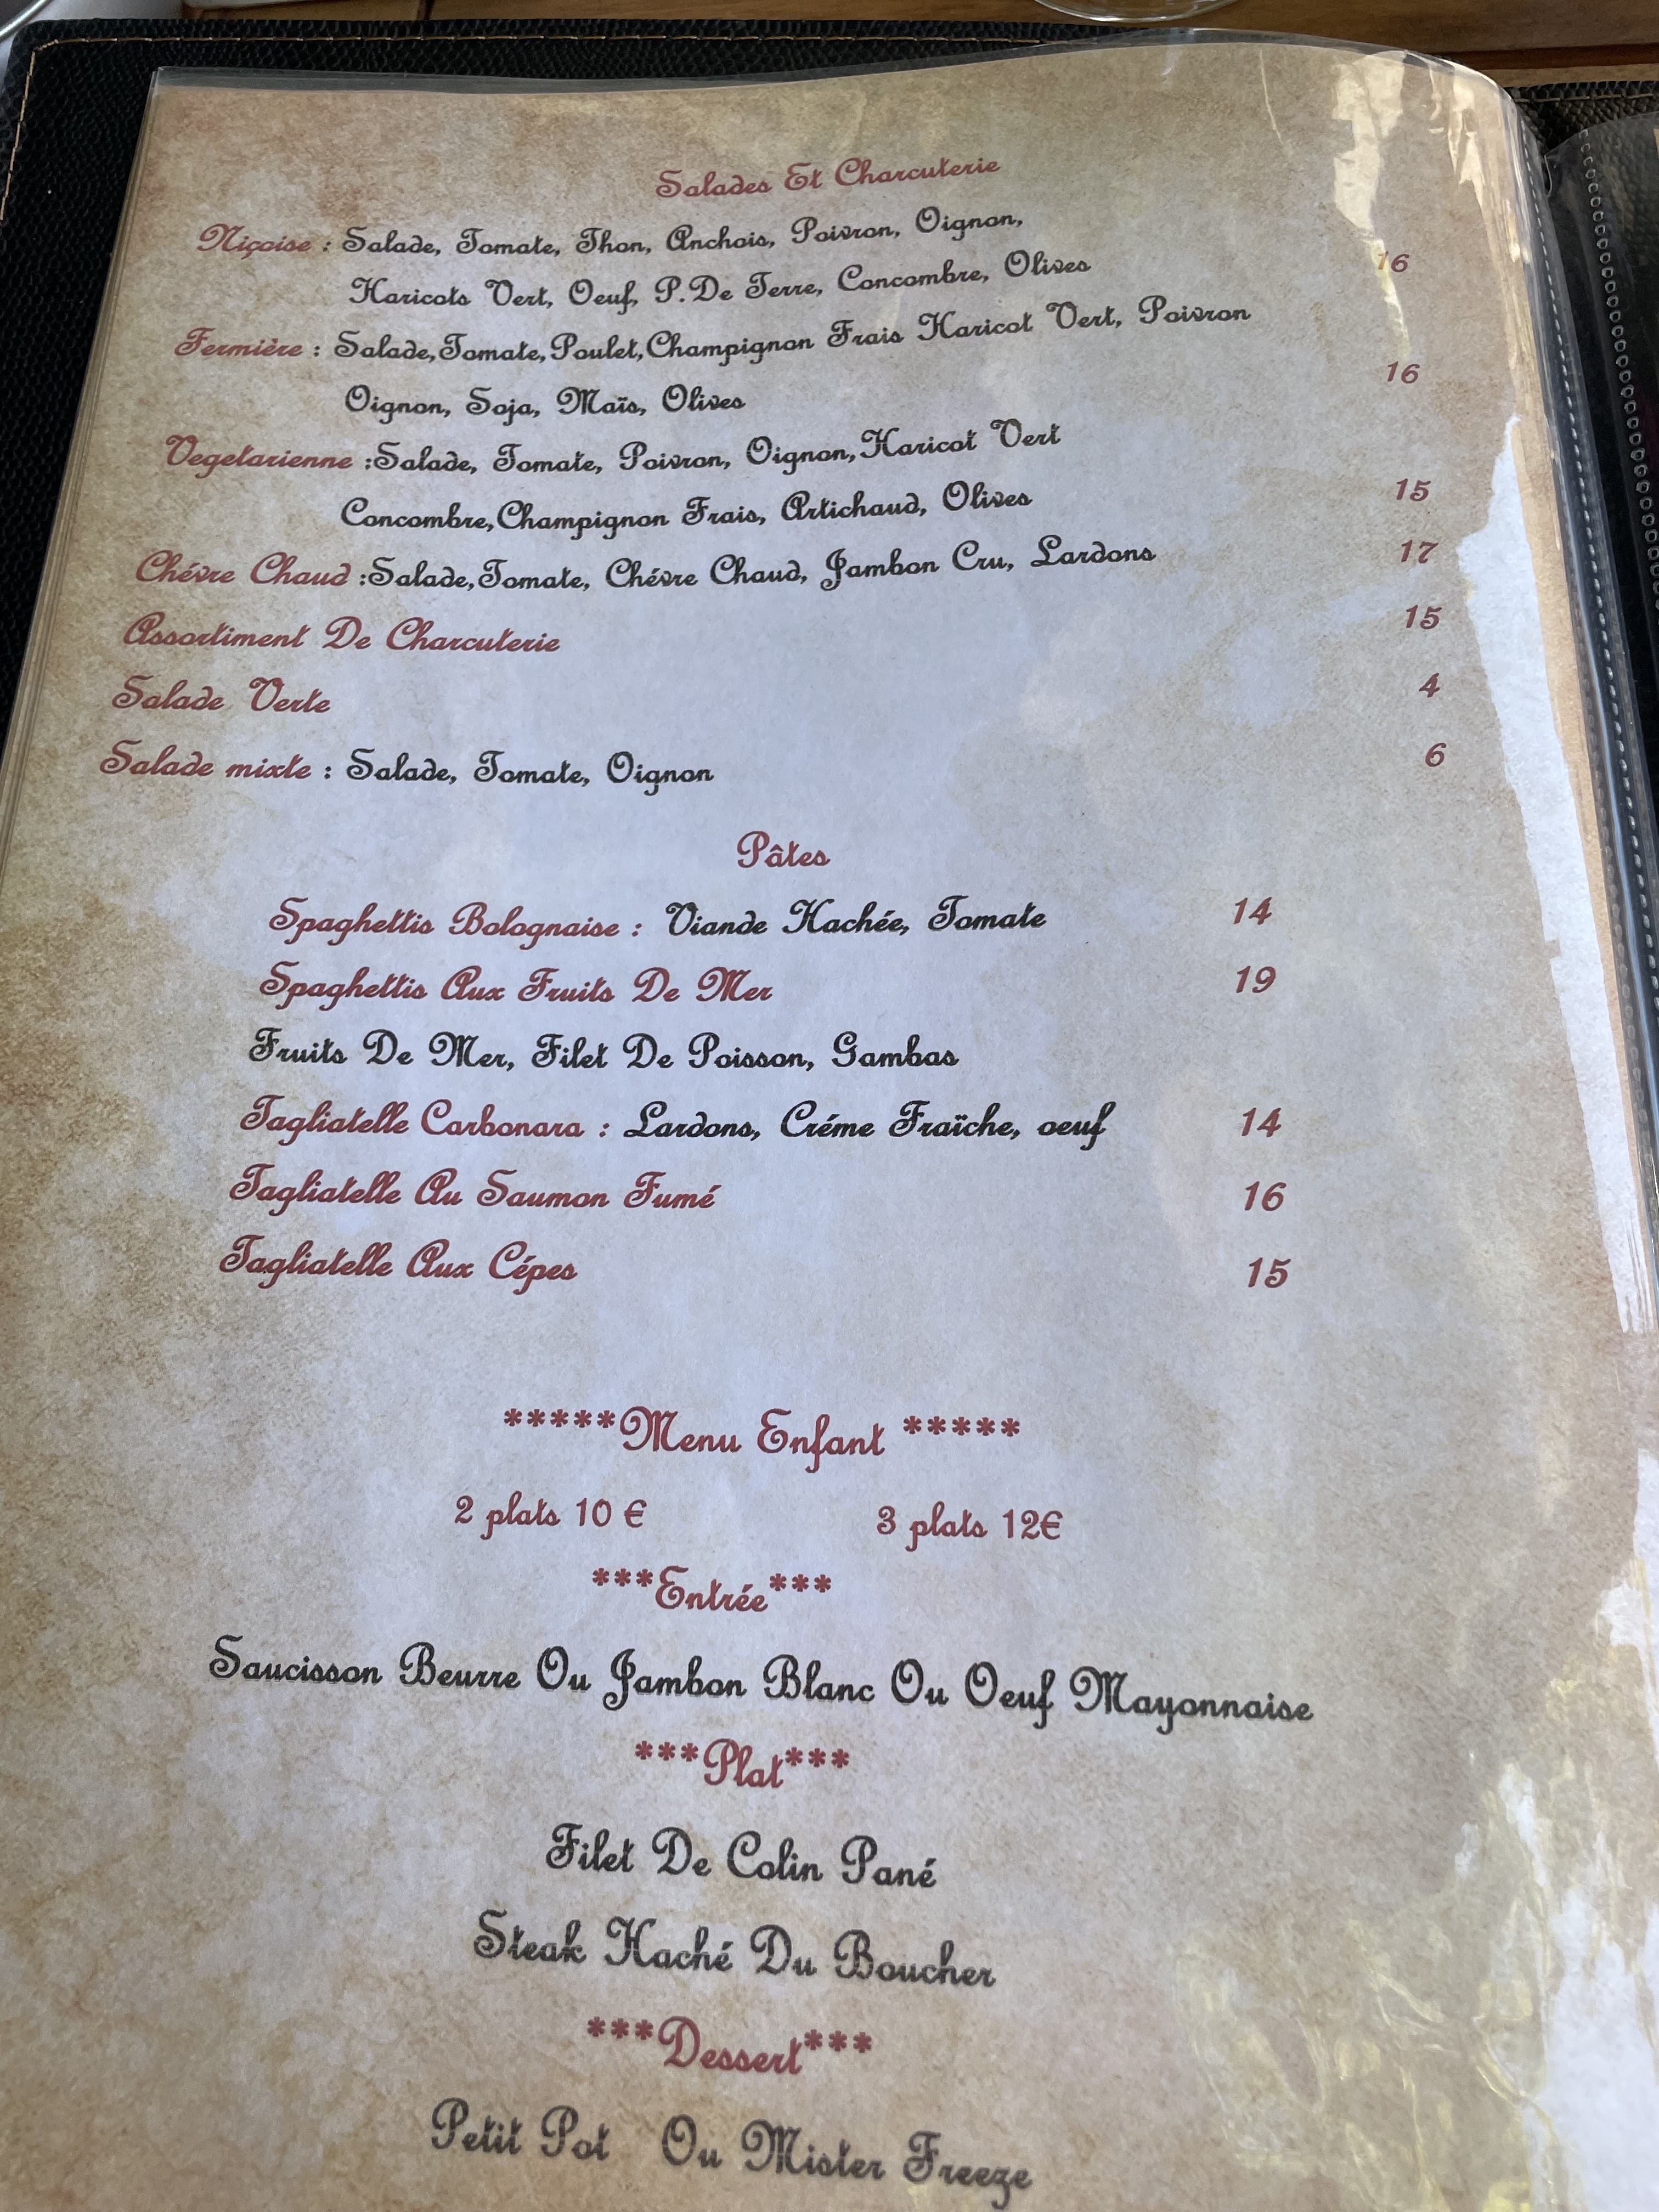 Salades Et Charcuterie
Niçoise : Salade, Tomate, Thon, Anchois, Poivron, Oignon,
Haricots Vert, Oeuf, P.De Terre, Concombre, Olives 16
Fermière : Salade,Tomate,Poulet,Champignon Frais Haricot Vert, Poivron
Oignon, Soja, Maïs, Olives 16
Vegetarienne :Salade, Tomate, Poivron, Oignon,Haricot Vert
Concombre,Champignon Frais, Artichaud, Olives 15
Chévre Chaud :Salade,Tomate, Chévre Chaud, Jambon Cru, Lardons 17
Assortiment De Charcuterie 15
Salade Verte 4
Salade mixte : Salade, Tomate, Oignon 6
Pâtes
Spaghettis Bolognaise : Viande Hachée, Tomate 14
Spaghettis Aux Fruits De Mer 19
Fruits De Mer, Filet De Poisson, Gambas
Tagliatelle Carbonara : Lardons, Créme Fraïche, oeuf 14
Tagliatelle Au Saumon Fumé 16
Tagliatelle Aux Cépes 15
*****Menu Enfant *****
2 plats 10 € 3 plats 12€
***Entrée***
Saucisson Beurre Ou Jambon Blanc Ou Oeuf Mayonnaise
***Plat***
Filet De Colin Pané
Steak Haché Du Boucher
***Dessert***
Petit Pot Ou Mister Freeze